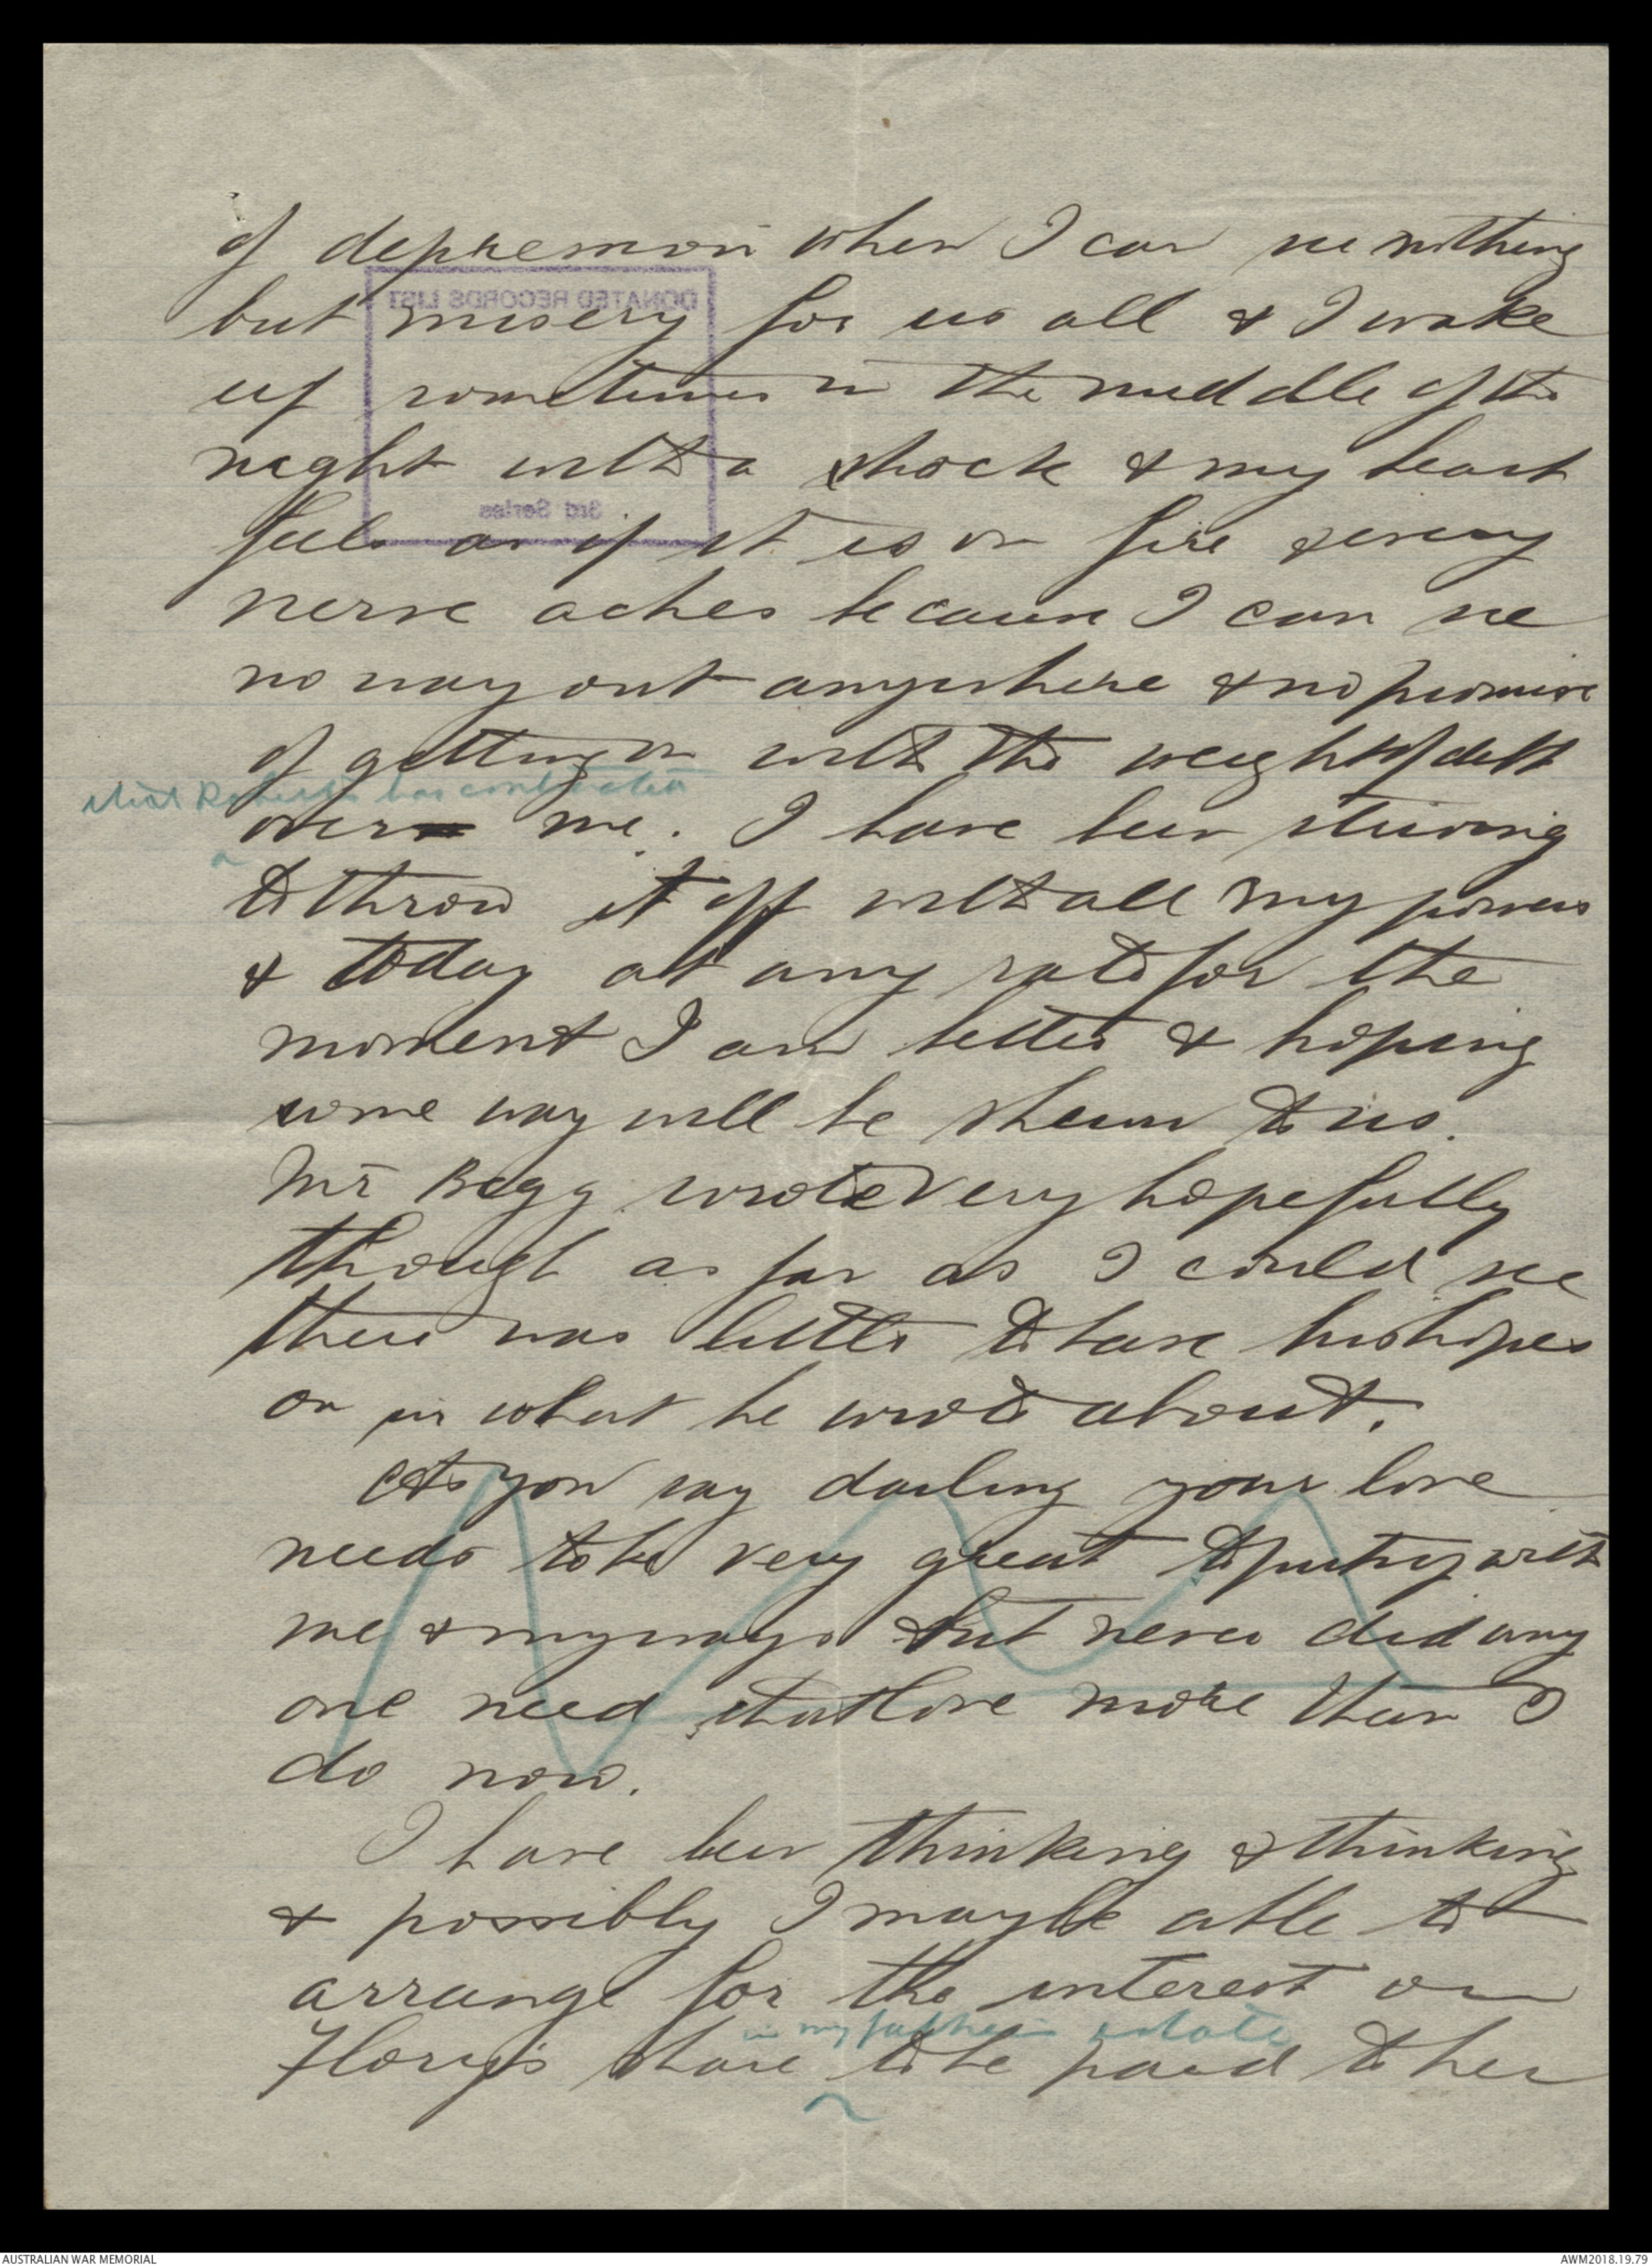 of depression when I can see nothing
DONATED RECORDS LIST
but misery for us all & I wake
up sometimes in the middle of the
night with a shock & my heart
3rd Series
feels as if it is on fire & every
nerve aches because I can see
no way out anywhere & no promise
of getting on with the weight of debt
that Roberts has
over me. I have been striving
to throw it off with all my powers
& today at any rate for the
moment I am better & hoping
some way will be shewn to us.
Mr Begg wrote very hopefully
though as far as I could see
there was little to base his hopes
on in what he wrote about.
As you say darling your love
needs to be very great to put up with
me & my ways & but never did any
one need that love more than I
do now.
I have been thinking & thinking
& possibly I may be able to
arrange for the interest on
in my father's estate
Flory's share to be paid to her
AUSTRALIAN WAR MEMORIAL
AWM2018.19.79